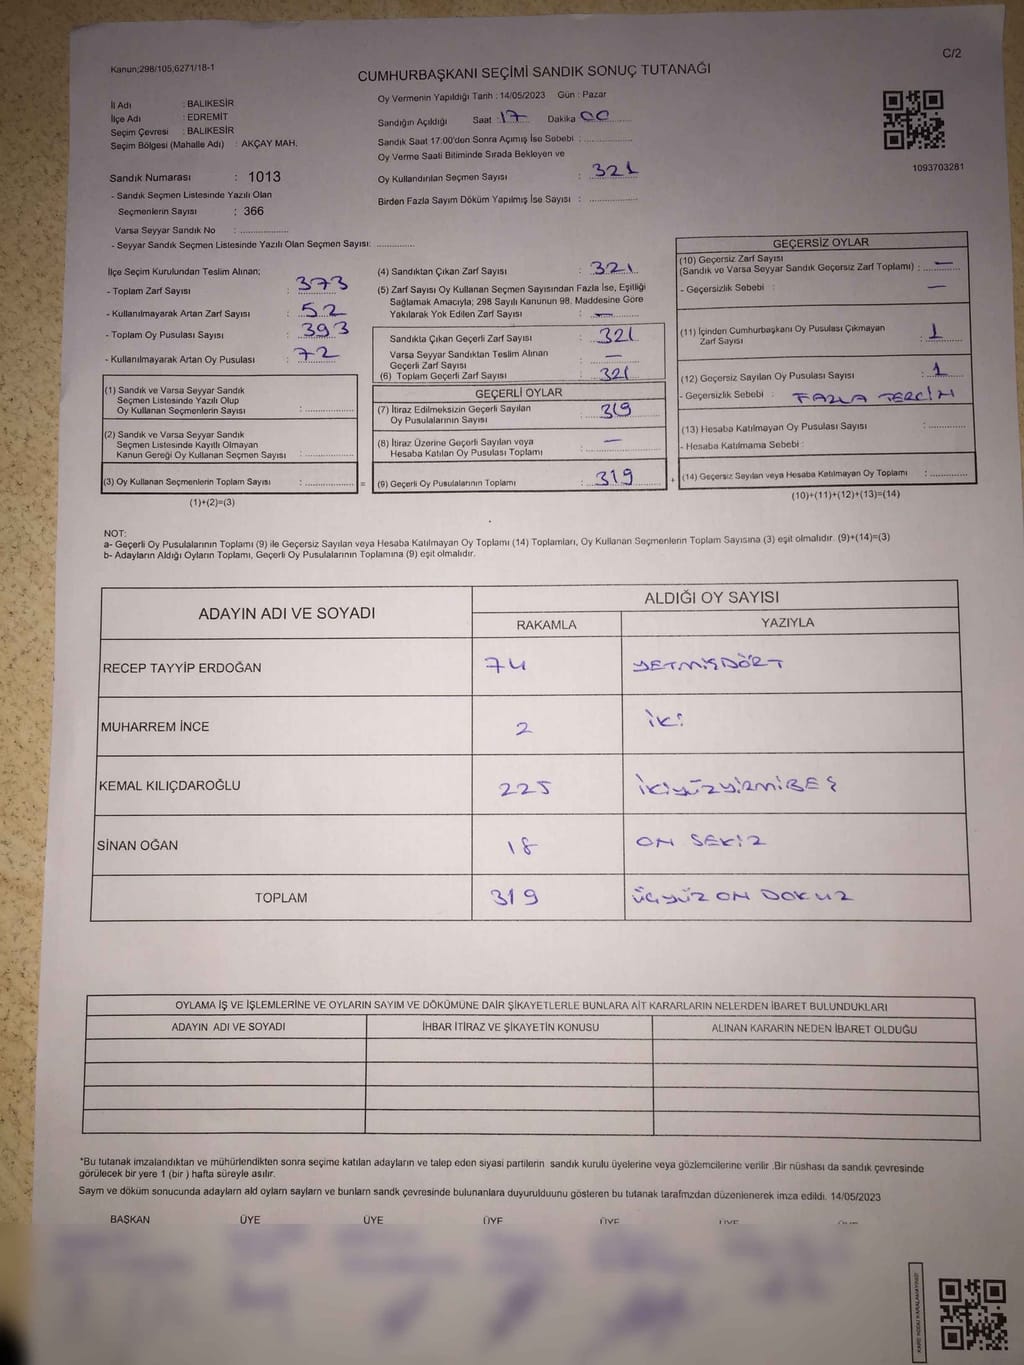 Kanun;298/105;6271/18-1
C/2
CUMHURBAŞKANI SEÇİMİ SANDIK SONUÇ TUTANAĞI
İl Adı : BALIKESİR
İlçe Adı : EDREMİT
Seçim Çevresi : BALIKESİR
Seçim Bölgesi (Mahalle Adı) : AKÇAY MAH.
Sandık Numarası : 1013
- Sandık Seçmen Listesinde Yazılı Olan
Seçmenlerin Sayısı : 366
Varsa Seyyar Sandık No : ..................
- Seyyar Sandık Seçmen Listesinde Yazılı Olan Seçmen Sayısı: ..............
Oy Vermenin Yapıldığı Tarih : 14/05/2023 Gün : Pazar
Sandığın Açıldığı Saat : 17 Dakika 00
Sandık Saat 17:00'den Sonra Açımış İse Sebebi : ..................
Oy Verme Saati Bitiminde Sırada Bekleyen ve
Oy Kullandırılan Seçmen Sayısı : 321
Birden Fazla Sayım Döküm Yapılmış İse Sayısı : ..................
1093703281
İlçe Seçim Kurulundan Teslim Alınan;
- Toplam Zarf Sayısı : 373
- Kullanılmayarak Artan Zarf Sayısı : 52
- Toplam Oy Pusulası Sayısı : 393
- Kullanılmayarak Artan Oy Pusulası : 72
(1) Sandık ve Varsa Seyyar Sandık
Seçmen Listesinde Yazılı Olup
Oy Kullanan Seçmenlerin Sayısı : ..................
(2) Sandık ve Varsa Seyyar Sandık
Seçmen Listesinde Kayıtlı Olmayan
Kanun Gereği Oy Kullanan Seçmen Sayısı : ..................
(3) Oy Kullanan Seçmenlerin Toplam Sayısı : .................. =
(1)+(2)=(3)
(4) Sandıktan Çıkan Zarf Sayısı : 321
(5) Zarf Sayısı Oy Kullanan Seçmen Sayısından Fazla İse, Eşitliği
Sağlamak Amacıyla; 298 Sayılı Kanunun 98. Maddesine Göre
Yakılarak Yok Edilen Zarf Sayısı : —
Sandıkta Çıkan Geçerli Zarf Sayısı : 321
Varsa Seyyar Sandıktan Teslim Alınan
Geçerli Zarf Sayısı : —
(6) Toplam Geçerli Zarf Sayısı : 321
GEÇERLİ OYLAR
(7) İtiraz Edilmeksizin Geçerli Sayılan
Oy Pusulalarının Sayısı : 319
(8) İtiraz Üzerine Geçerli Sayılan veya
Hesaba Katılan Oy Pusulası Toplamı : —
(9) Geçerli Oy Pusulalarının Toplamı : 319 +
GEÇERSİZ OYLAR
(10) Geçersiz Zarf Sayısı
(Sandık ve Varsa Seyyar Sandık Geçersiz Zarf Toplamı) : —
- Geçersizlik Sebebi : —
(11) İçinden Cumhurbaşkanı Oy Pusulası Çıkmayan
Zarf Sayısı : 1
(12) Geçersiz Sayılan Oy Pusulası Sayısı : 1
- Geçersizlik Sebebi : FAZLA TERCİH
(13) Hesaba Katılmayan Oy Pusulası Sayısı : ..............
- Hesaba Katılmama Sebebi :
(14) Geçersiz Sayılan veya Hesaba Katılmayan Oy Toplamı : ..............
(10)+(11)+(12)+(13)=(14)
NOT:
a- Geçerli Oy Pusulalarının Toplamı (9) ile Geçersiz Sayılan veya Hesaba Katılmayan Oy Toplamı (14) Toplamları, Oy Kullanan Seçmenlerin Toplam Sayısına (3) eşit olmalıdır. (9)+(14)=(3)
b- Adayların Aldığı Oyların Toplamı, Geçerli Oy Pusulalarının Toplamına (9) eşit olmalıdır.
ADAYIN ADI VE SOYADI ALDIĞI OY SAYISI
RAKAMLA YAZIYLA
RECEP TAYYİP ERDOĞAN 74 YETMİŞDÖRT
MUHARREM İNCE 2 İKİ
KEMAL KILIÇDAROĞLU 225 İKİYÜZYİRMİBEŞ
SİNAN OĞAN 18 ON SEKİZ
TOPLAM 319 ÜÇYÜZ ON DOKUZ
OYLAMA İŞ VE İŞLEMLERİNE VE OYLARIN SAYIM VE DÖKÜMÜNE DAİR ŞİKAYETLERLE BUNLARA AİT KARARLARIN NELERDEN İBARET BULUNDUKLARI
ADAYIN ADI VE SOYADI İHBAR İTİRAZ VE ŞİKAYETİN KONUSU ALINAN KARARIN NEDEN İBARET OLDUĞU
*Bu tutanak imzalandıktan ve mühürlendikten sonra seçime katılan adayların ve talep eden siyasi partilerin sandık kurulu üyelerine veya gözlemcilerine verilir .Bir nüshası da sandık çevresinde
görülecek bir yere 1 (bir ) hafta süreyle asılır.
Saym ve döküm sonucunda adaylarn ald oylarn saylarn ve bunlarn sandk çevresinde bulunanlara duyurulduunu gösteren bu tutanak tarafmzdan düzenlenerek imza edildi. 14/05/2023
BAŞKAN ÜYE ÜYE ÜYE ÜYE ÜYE